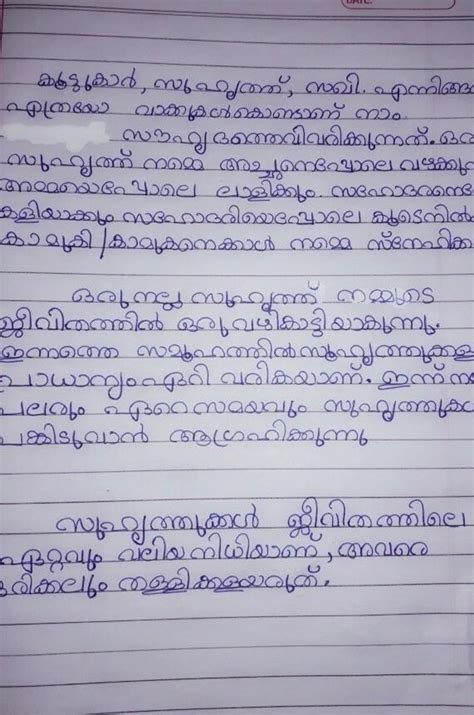 DATE:
കൂട്ടുകാർ, സുഹൃത്ത്, സഖി. എന്നിങ്ങ
എത്രയോ വാക്കുകൾകൊണ്ടാണ് നാം
സൗഹൃദത്തെവിവരിക്കുന്നത്. ഒര
സുഹൃത്ത് നമ്മെ അച്ഛനെപ്പോലെ വഴക്കു
അമ്മയെപ്പോലെ ലാളിക്കും. സഹോദരനെ
കളിയാക്കും സഹോദരിയെപ്പോലെ കൂടെനിൽ
കാമുകി / കാമുകനെക്കാൾ നമ്മെ സ്നേഹിക
ഒരുനല്ല സുഹൃത്ത് നമ്മുടെ
ജീവിതത്തിൽ ഒരുവഴികാട്ടിയാകുന്നു.
ഇന്നത്തെ സമൂഹത്തിൽസുഹൃത്തുക്കള
പ്രാധാന്യം ഏറി വരികയാണ്. ഇന്ന് ന
പലരും ഏറെസമയവും സുഹൃത്തുക
പങ്കിടുവാൻ ആഗ്രഹിക്കുന്നു
സുഹൃത്തുക്കൾ ജീവിതത്തിലെ
ഏറ്റവും വലിയനിധിയാണ്, അവരെ
ഒരിക്കലും തള്ളിക്കളയരുത്.